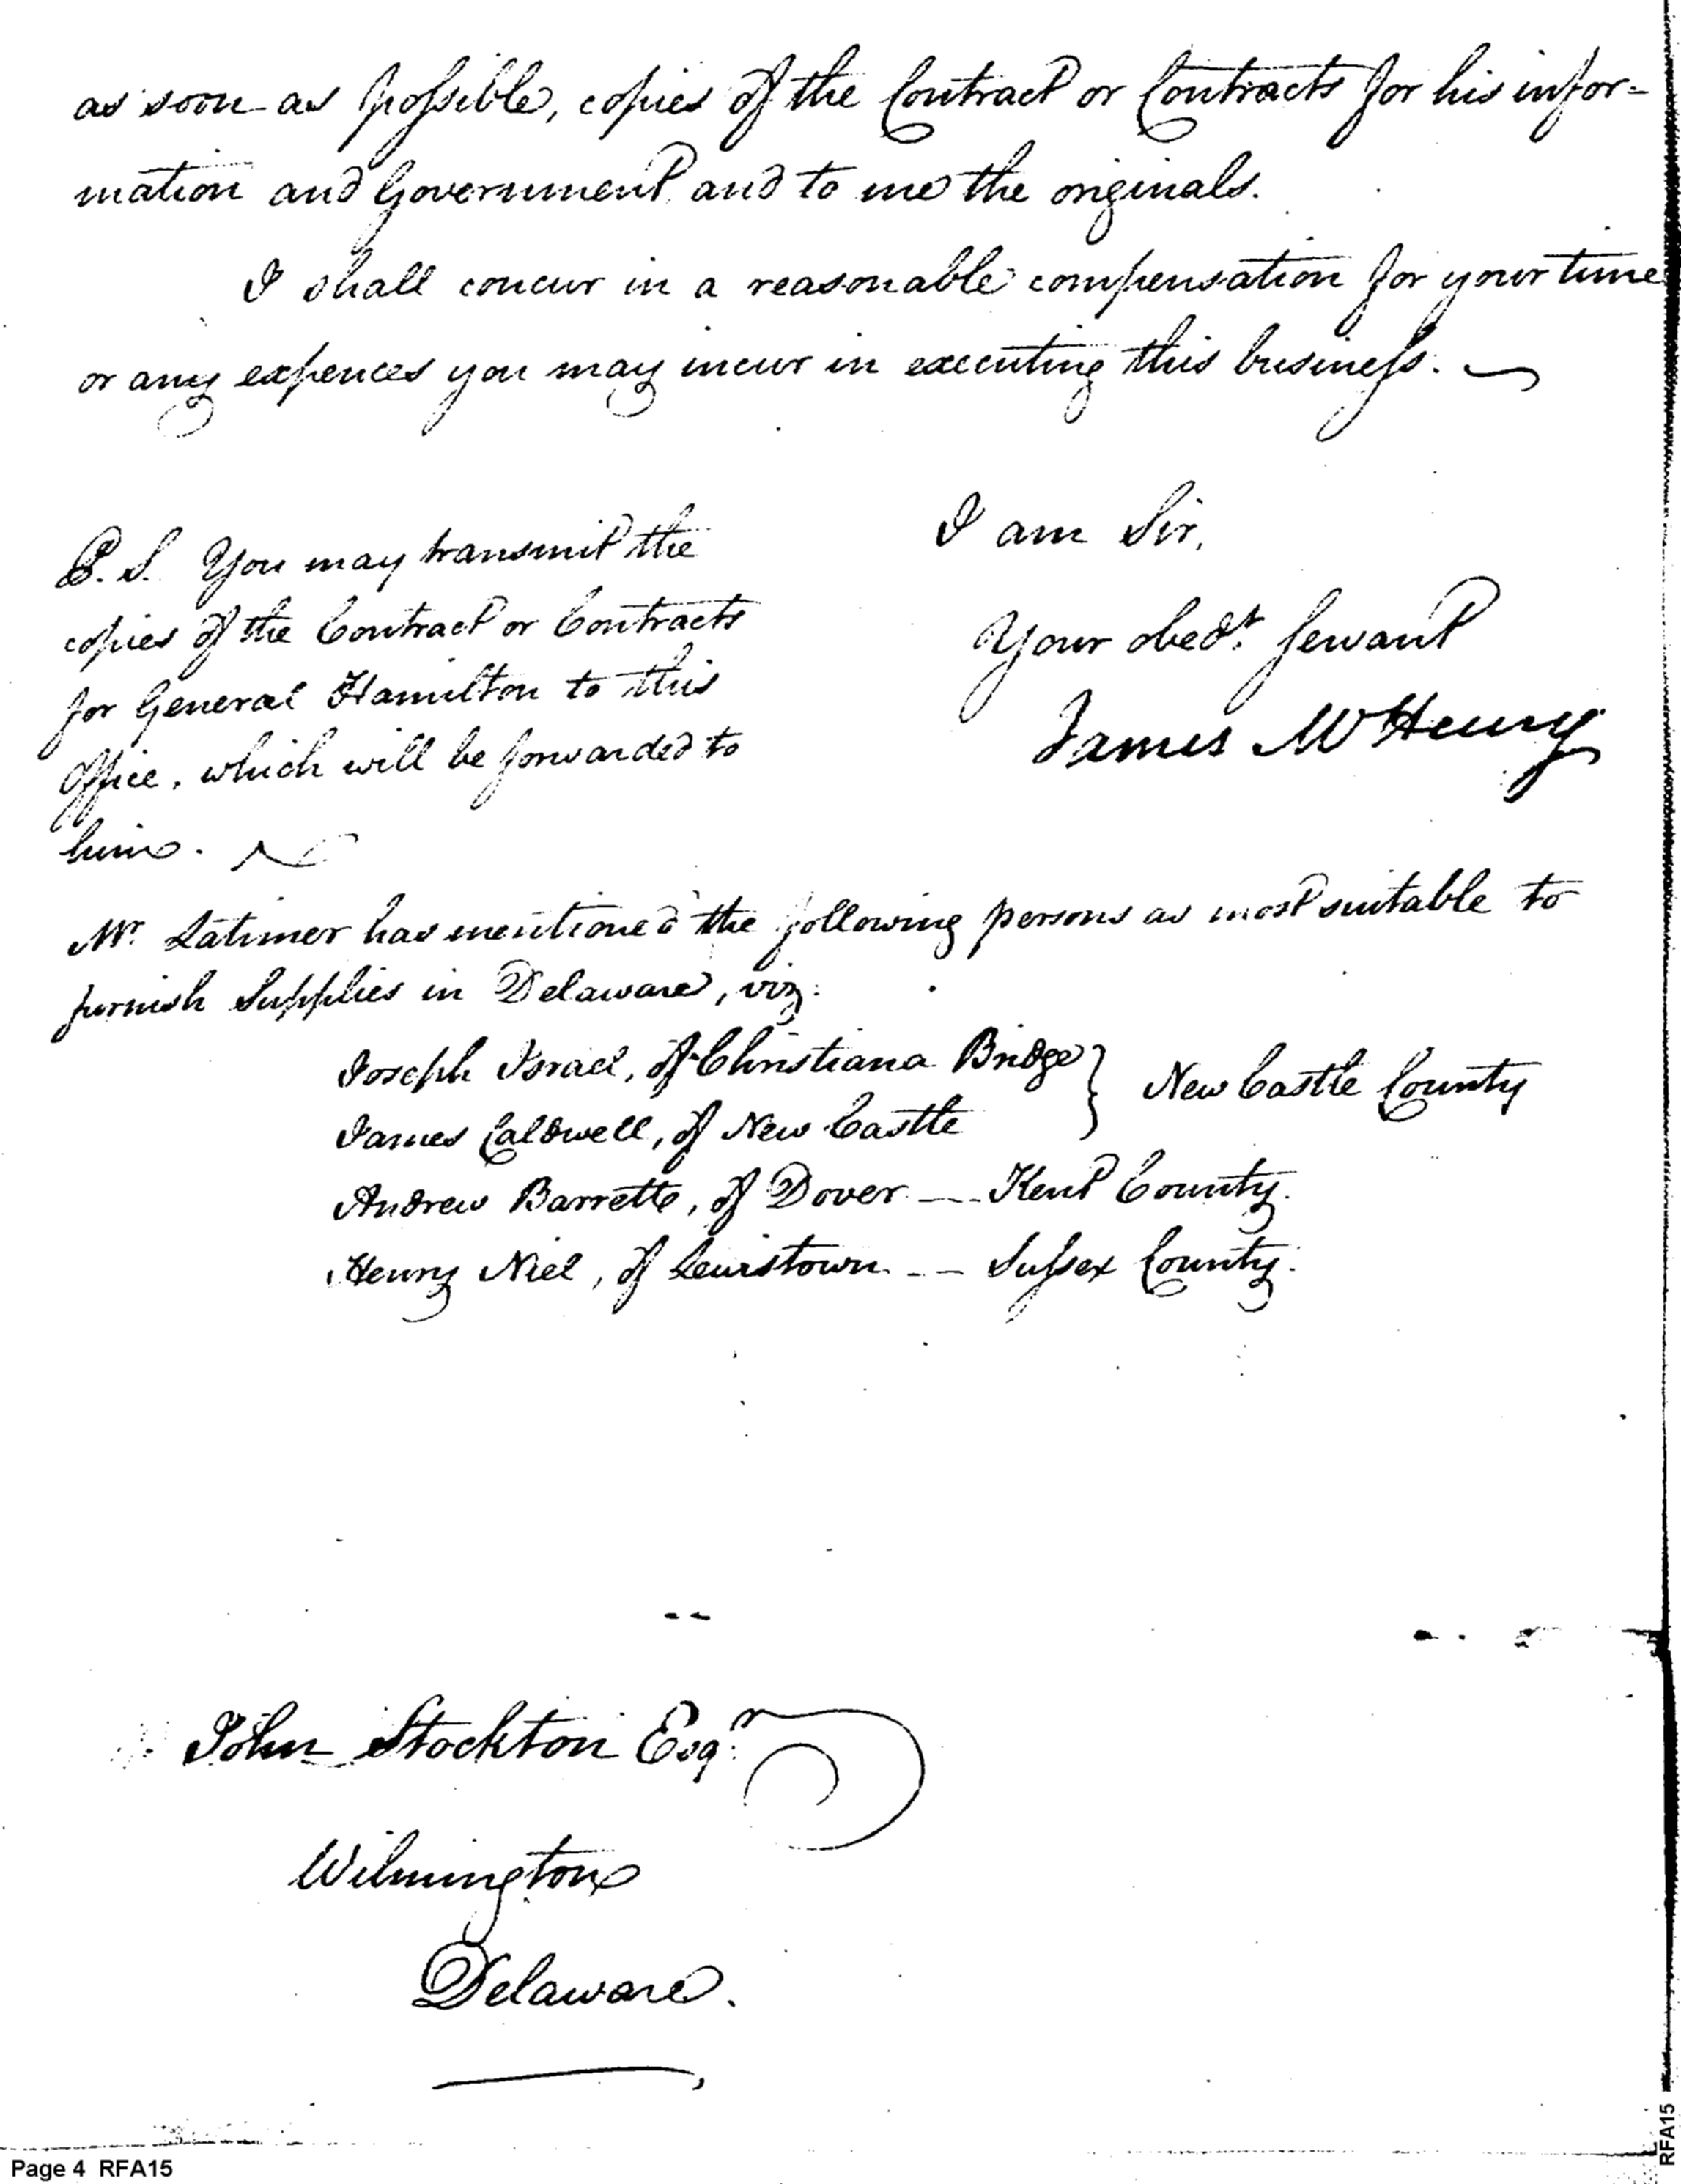 as soon as possible, copies of the Contract or Contracts for his infor=
mation and Government, and to me the originals.
I shall concur in a reasonable compensation for your time
or any expences you may incur in executing this business.
I am Sir,
Your obedt. servant
James McHenry
P. S. You may transmit the
copies of the Contract or Contracts
for General Hamilton to this
Office, which will be forwarded to
him.
Mr. Latimer has mentioned the following persons as most suitable to
furnish Supplies in Delaware, viz.
Joseph Israel, of Christiana Bridge } New Castle County
James Caldwell, of New Castle
Andrew Barrette, of Dover -- Kent County.
Henry Niel, of Lewistown -- Sussex County.
John Stockton Esqr.
Wilmington
Delaware.
Page 4 RFA15
RFA15